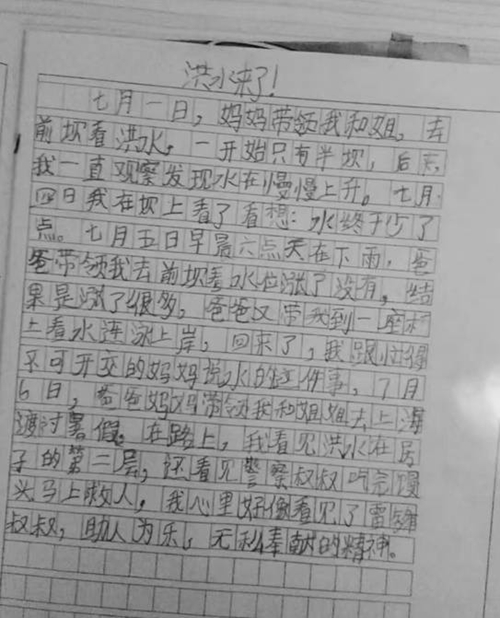 洪水来了!
七月一日,妈妈带领我和姐,去
前坝看洪水,一开始只有半坝,后来,
我一直观察发现水在慢慢上升。七月
四日我在坝上看了看想:水终于少了
点。七月五日早晨六点天在下雨,爸
爸带领我去前坝看水位涨了没有,结
果是涨了很多,爸爸又带我到一座桥
上看水连泳上岸,回来了,我跟忙得
不可开交的妈妈说水的这件事,7月
6日,爸爸妈妈带领我和姐姐去上海
渡过暑假。在路上,我看见洪水在房
子的第二层,还看见警察叔叔吃完馒
头马上救人,我心里好像看见了雷锋
叔叔,助人为乐,无私奉献的精神。